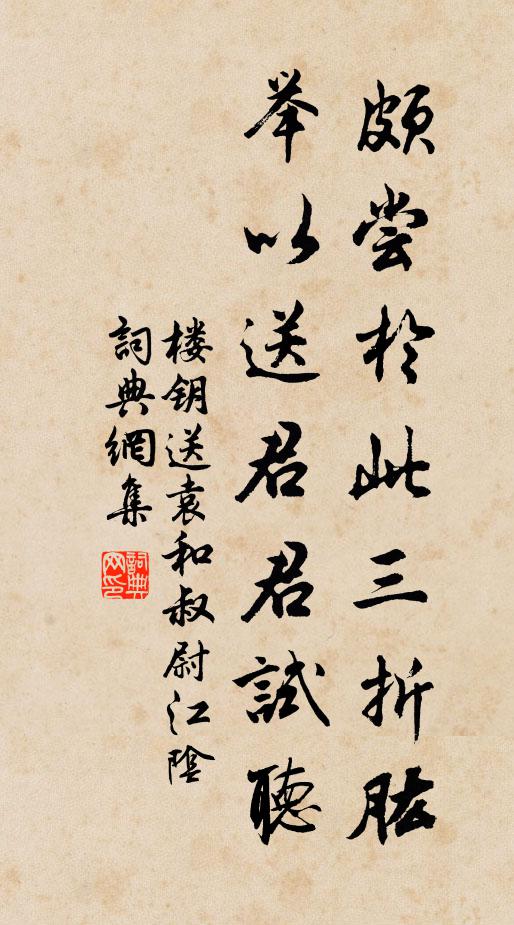 颇尝於此三折肱
举以送君君試聽
楼钥送袁和叔尉江陰
詞典網集
詞典
网印